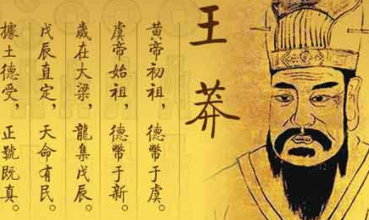 王莽
黄帝初祖，德幣于虞。
虞帝始祖，德幣于新。
歲在大梁，龍集戊辰。
戊辰直定，天命有民。
據土德受，正號既真。